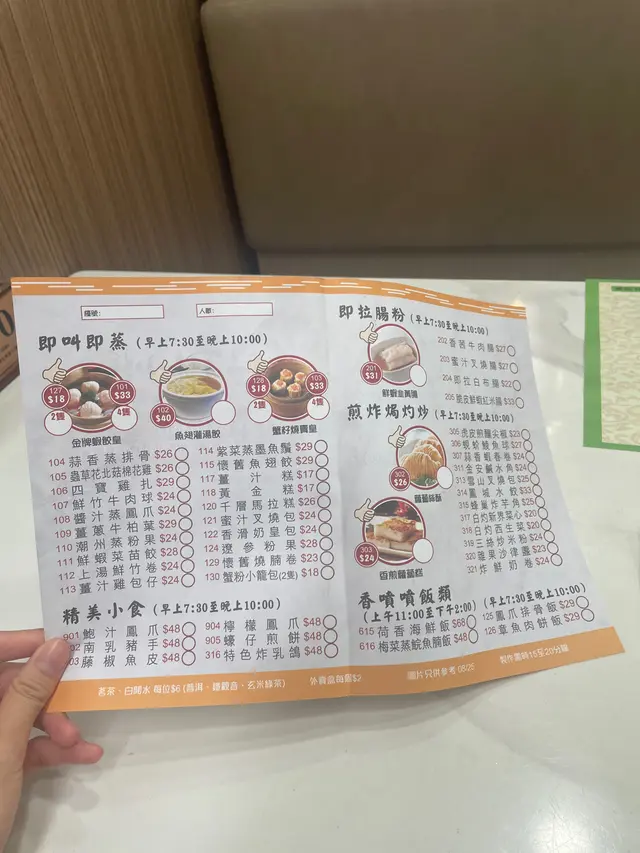 檯號：
人數：
即叫即蒸 (早上7:30至晚上10:00)
127 $18 2隻
101 $33 4隻
金牌蝦餃皇
102 $40
魚翅灌湯餃
128 $18 2隻
103 $33 4隻
蟹籽燒賣皇
104 蒜香蒸排骨 $26
105 蟲草花北菇棉花雞 $26
106 四寶雞扎 $29
107 鮮竹牛肉球 $24
108 醬汁蒸鳳爪 $24
109 薑蔥牛柏葉 $29
110 潮州蒸粉果 $24
111 鮮蝦菜苗餃 $28
112 上湯鮮竹卷 $24
113 薑汁雞包仔 $24
114 紫菜蒸墨魚鬚 $29
115 懷舊魚翅餃 $29
117 薑汁糕 $17
118 黃金糕 $17
120 千層馬拉糕 $26
121 蜜汁叉燒包 $24
122 香滑奶皇包 $24
124 遼參粉果 $28
129 懷舊燒腩卷 $23
130 蟹粉小籠包(2隻) $18
精美小食 (早上7:30至晚上10:00)
901 鮑汁鳳爪 $48
902 南乳豬手 $48
903 藤椒魚皮 $48
904 檸檬鳳爪 $48
905 蠔仔煎餅 $48
316 特色炸乳鴿 $48
即拉腸粉 (早上7:30至晚上10:00)
201 $31
鮮蝦韭黃腸
202 香茜牛肉腸 $27
203 蜜汁叉燒腸 $27
204 即拉白布腸 $22
205 脆皮鮮蝦紅米腸 $33
煎炸焗灼炒 (早上7:30至晚上10:00)
302 $26
蘿蔔絲酥
303 $24
香煎蘿蔔糕
305 虎皮煎釀尖椒 $23
306 蜆蚧鯪魚球 $27
307 蒜香蝦春卷 $24
311 金安鹹水角 $24
313 雪山叉燒包 $25
314 鳳城水餃 $33
315 蜂巢炸芋角 $25
317 白灼新界菜心 $20
318 白灼西生菜 $20
319 三絲炒米粉 $24
320 雜果沙律 $23
321 炸鮮奶卷 $24
香噴噴飯類
(上午11:00至下午2:00)
615 荷香海鮮飯 $68
616 梅菜蒸鯇魚腩飯 $48
(早上7:30至晚上10:00)
125 鳳爪排骨飯 $29
126 章魚肉餅飯 $29
茗茶、白開水 每位$6 (普洱、鐵觀音、玄米綠茶)
外賣盒每個$2
圖片只供參考 08/25
製作需時15至20分鐘